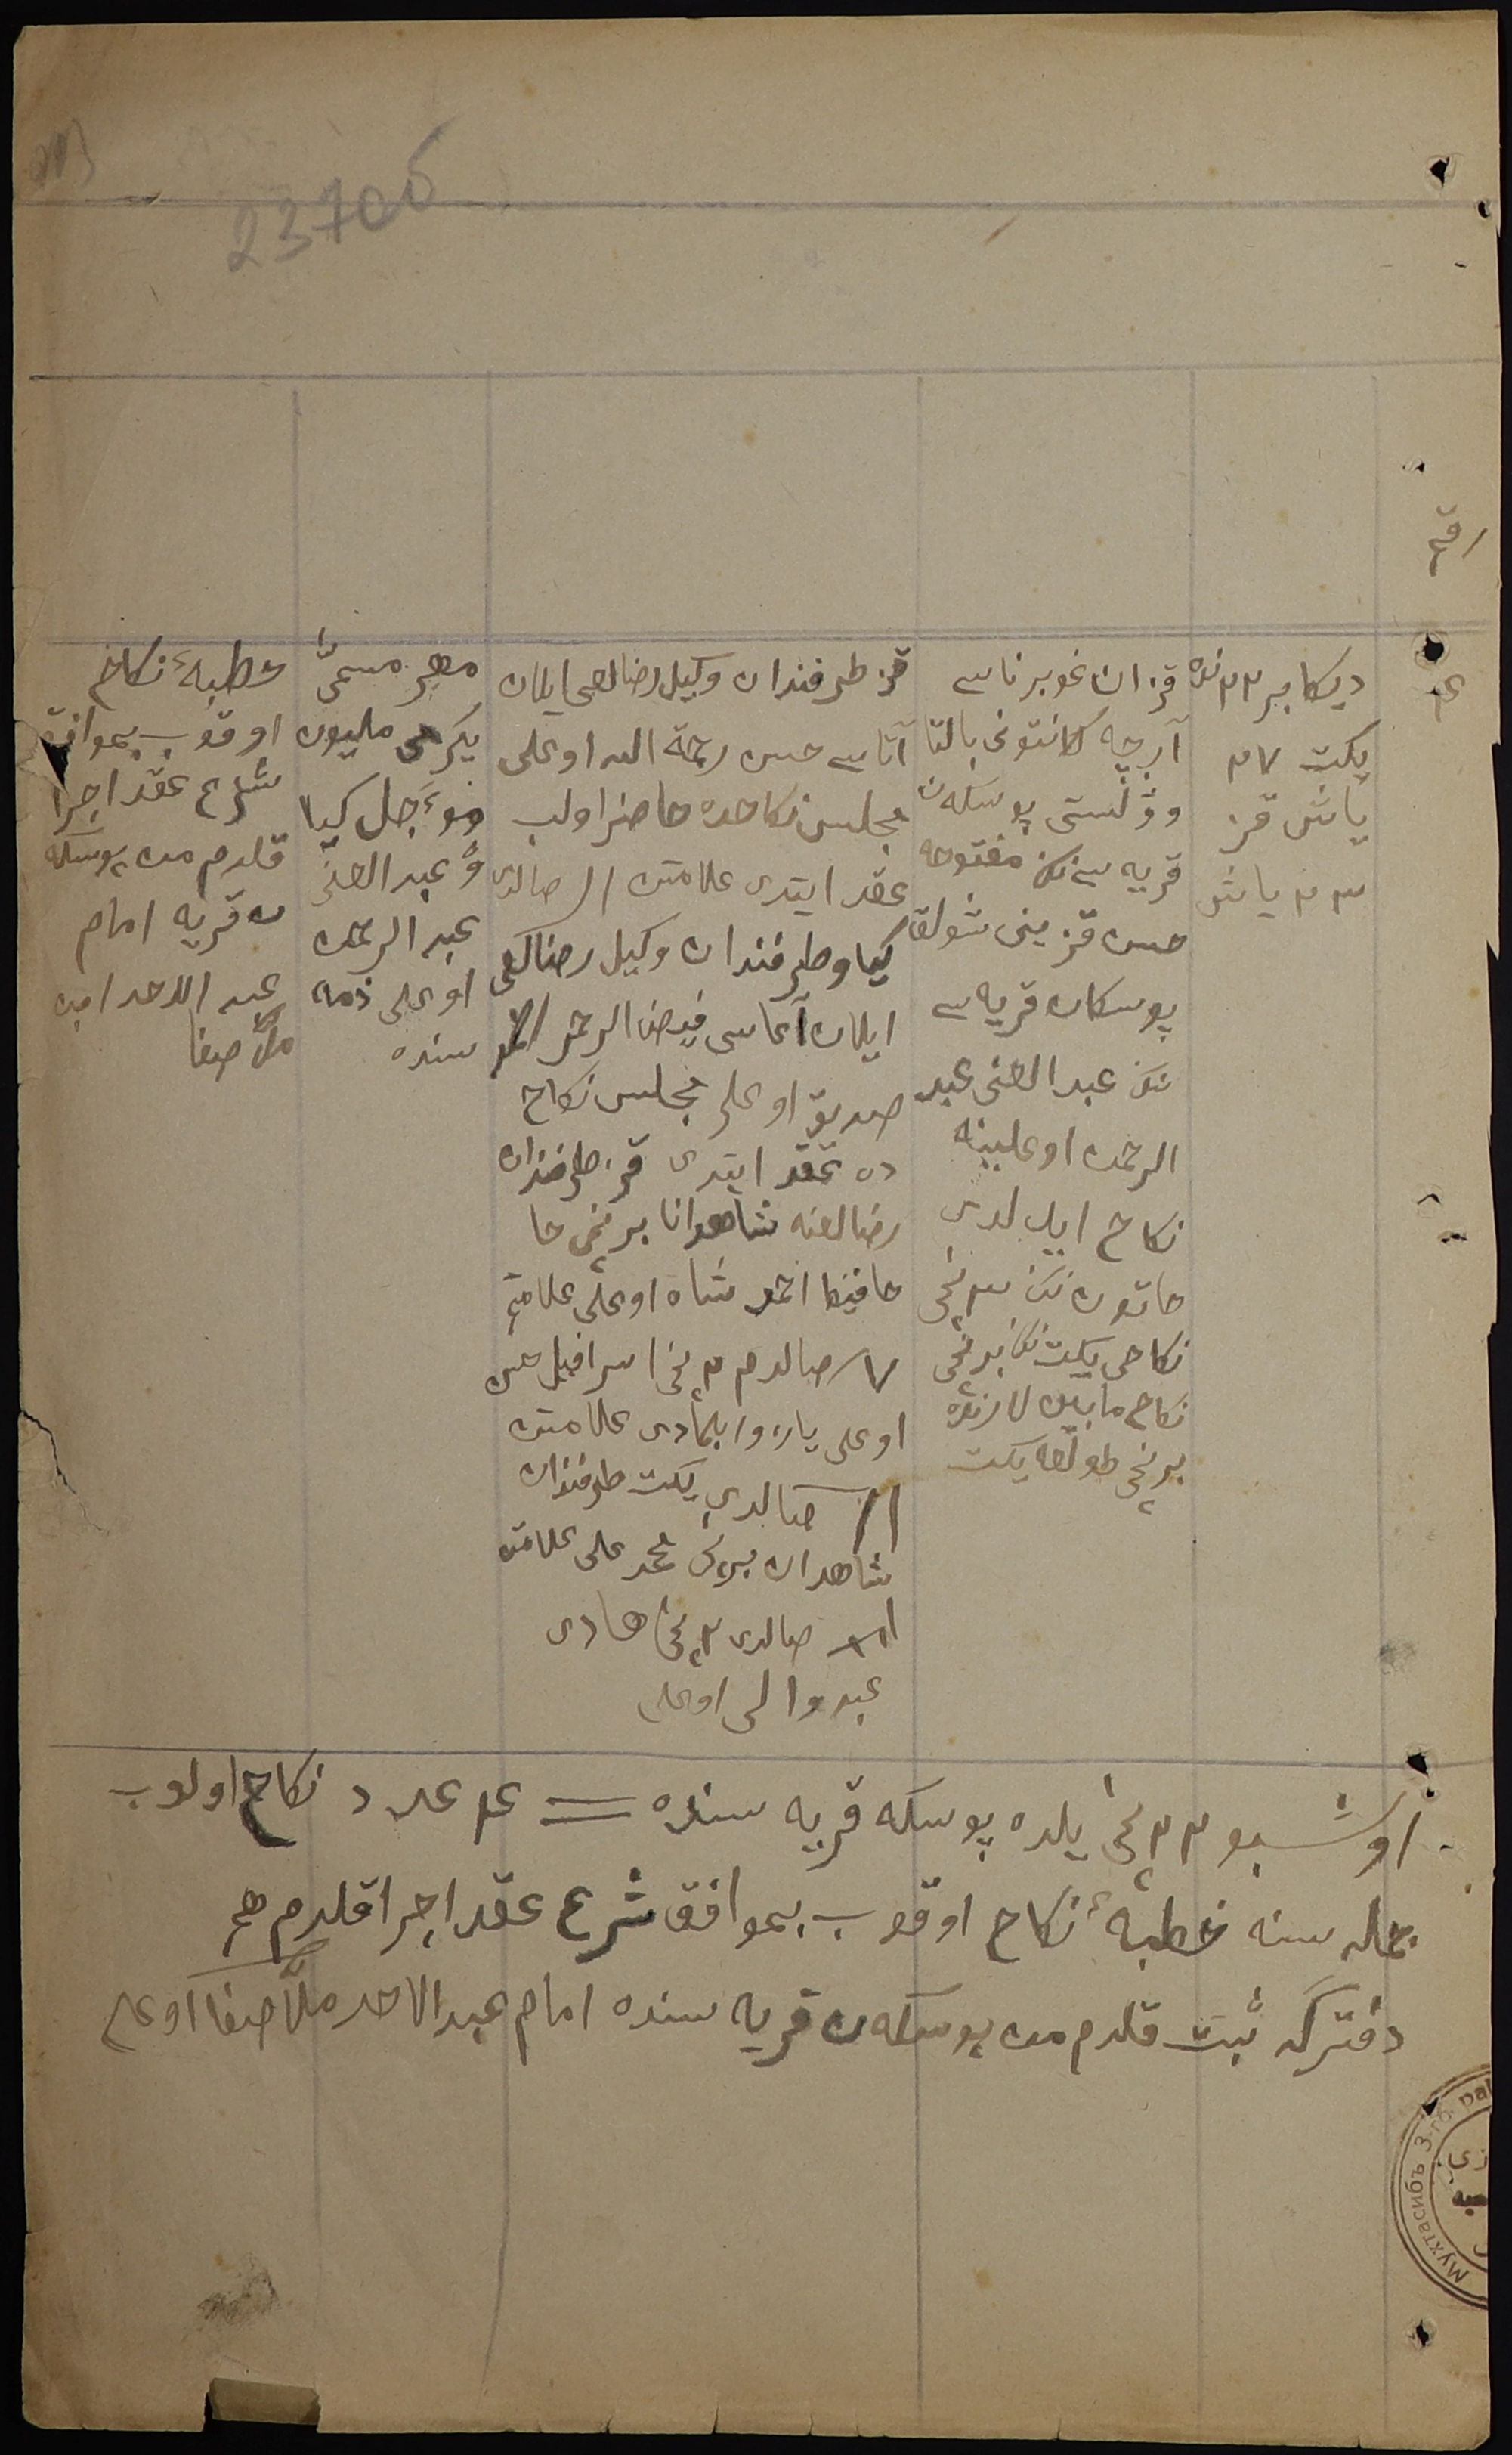 237об
رقم
ع
دیکابر ۲۲ نده
یکت ۲۷
یاش قز
۲۲ یاش
قزان غوبرناسے
آرچه کانتونی بالتا
وۇلستی پوسکه‌ن
قریه سے‌نڭ مفتوحه
حسن قزینی شولق
پوسکان قریه سے
نڭ عبد الغنی عبد
الرحمن اوغلینه
نکاح ایدلدی
خاتون نڭ نچی
نکاحی یکت نڭ برنچی
نکاح مابین لارنده
برنچی طوغه یکت
قز طرفندان وکیل رضالغی ایلان
آتاسے حسن رحمة الله اوغلی
مجلس نکاحده حاضر اولب
عقد ایتدی علامتن /// صالدی
کیاو طرفندان وکیل رضالغی
ایلان آغاسی فیض الرحمن
صدیق اوغلی مجلس نکاح
ده عقد ایتدی قز طرفندان
رضالغنه شاهدانا برنچی حا
حافیظ احمد شاه اوغلی علامتم
صالدم ۲نچی اسرافیل حسن
اوغلی یازو بلمادی علامتن
/// صالدی یکت طرفندان
شاهدان برنچی محمد علی علامتن
صالدی ۲نچی هادی
عبدوالی اوغلی
مهر مسمیّٰ
یکرمی ملیون
مؤجل کیا
ؤ عبد الغنی
عبد الرحمن
اوغلی ذمه
سنده
خطبهٔ نکاح
اوقوب بموافق
شرع عقد اجرا
قلدم من پوسکه
ن قریه امام
عبد الاحد ابن
ملّا صفا
اوشبو ۲۲نچی یلده پوسکه قریه سنده = ع عدد نکاح اولوب
جمله سنه خطبهٔ نکاح اوقوب بموافق شرع عقد اجرا قلدم هم
دفترگه ثبت قلدم من پوسکه‌ن قریه سنده امام عبد الاحد ملّا صفا اوغلی
Мухтасибъ 3-го